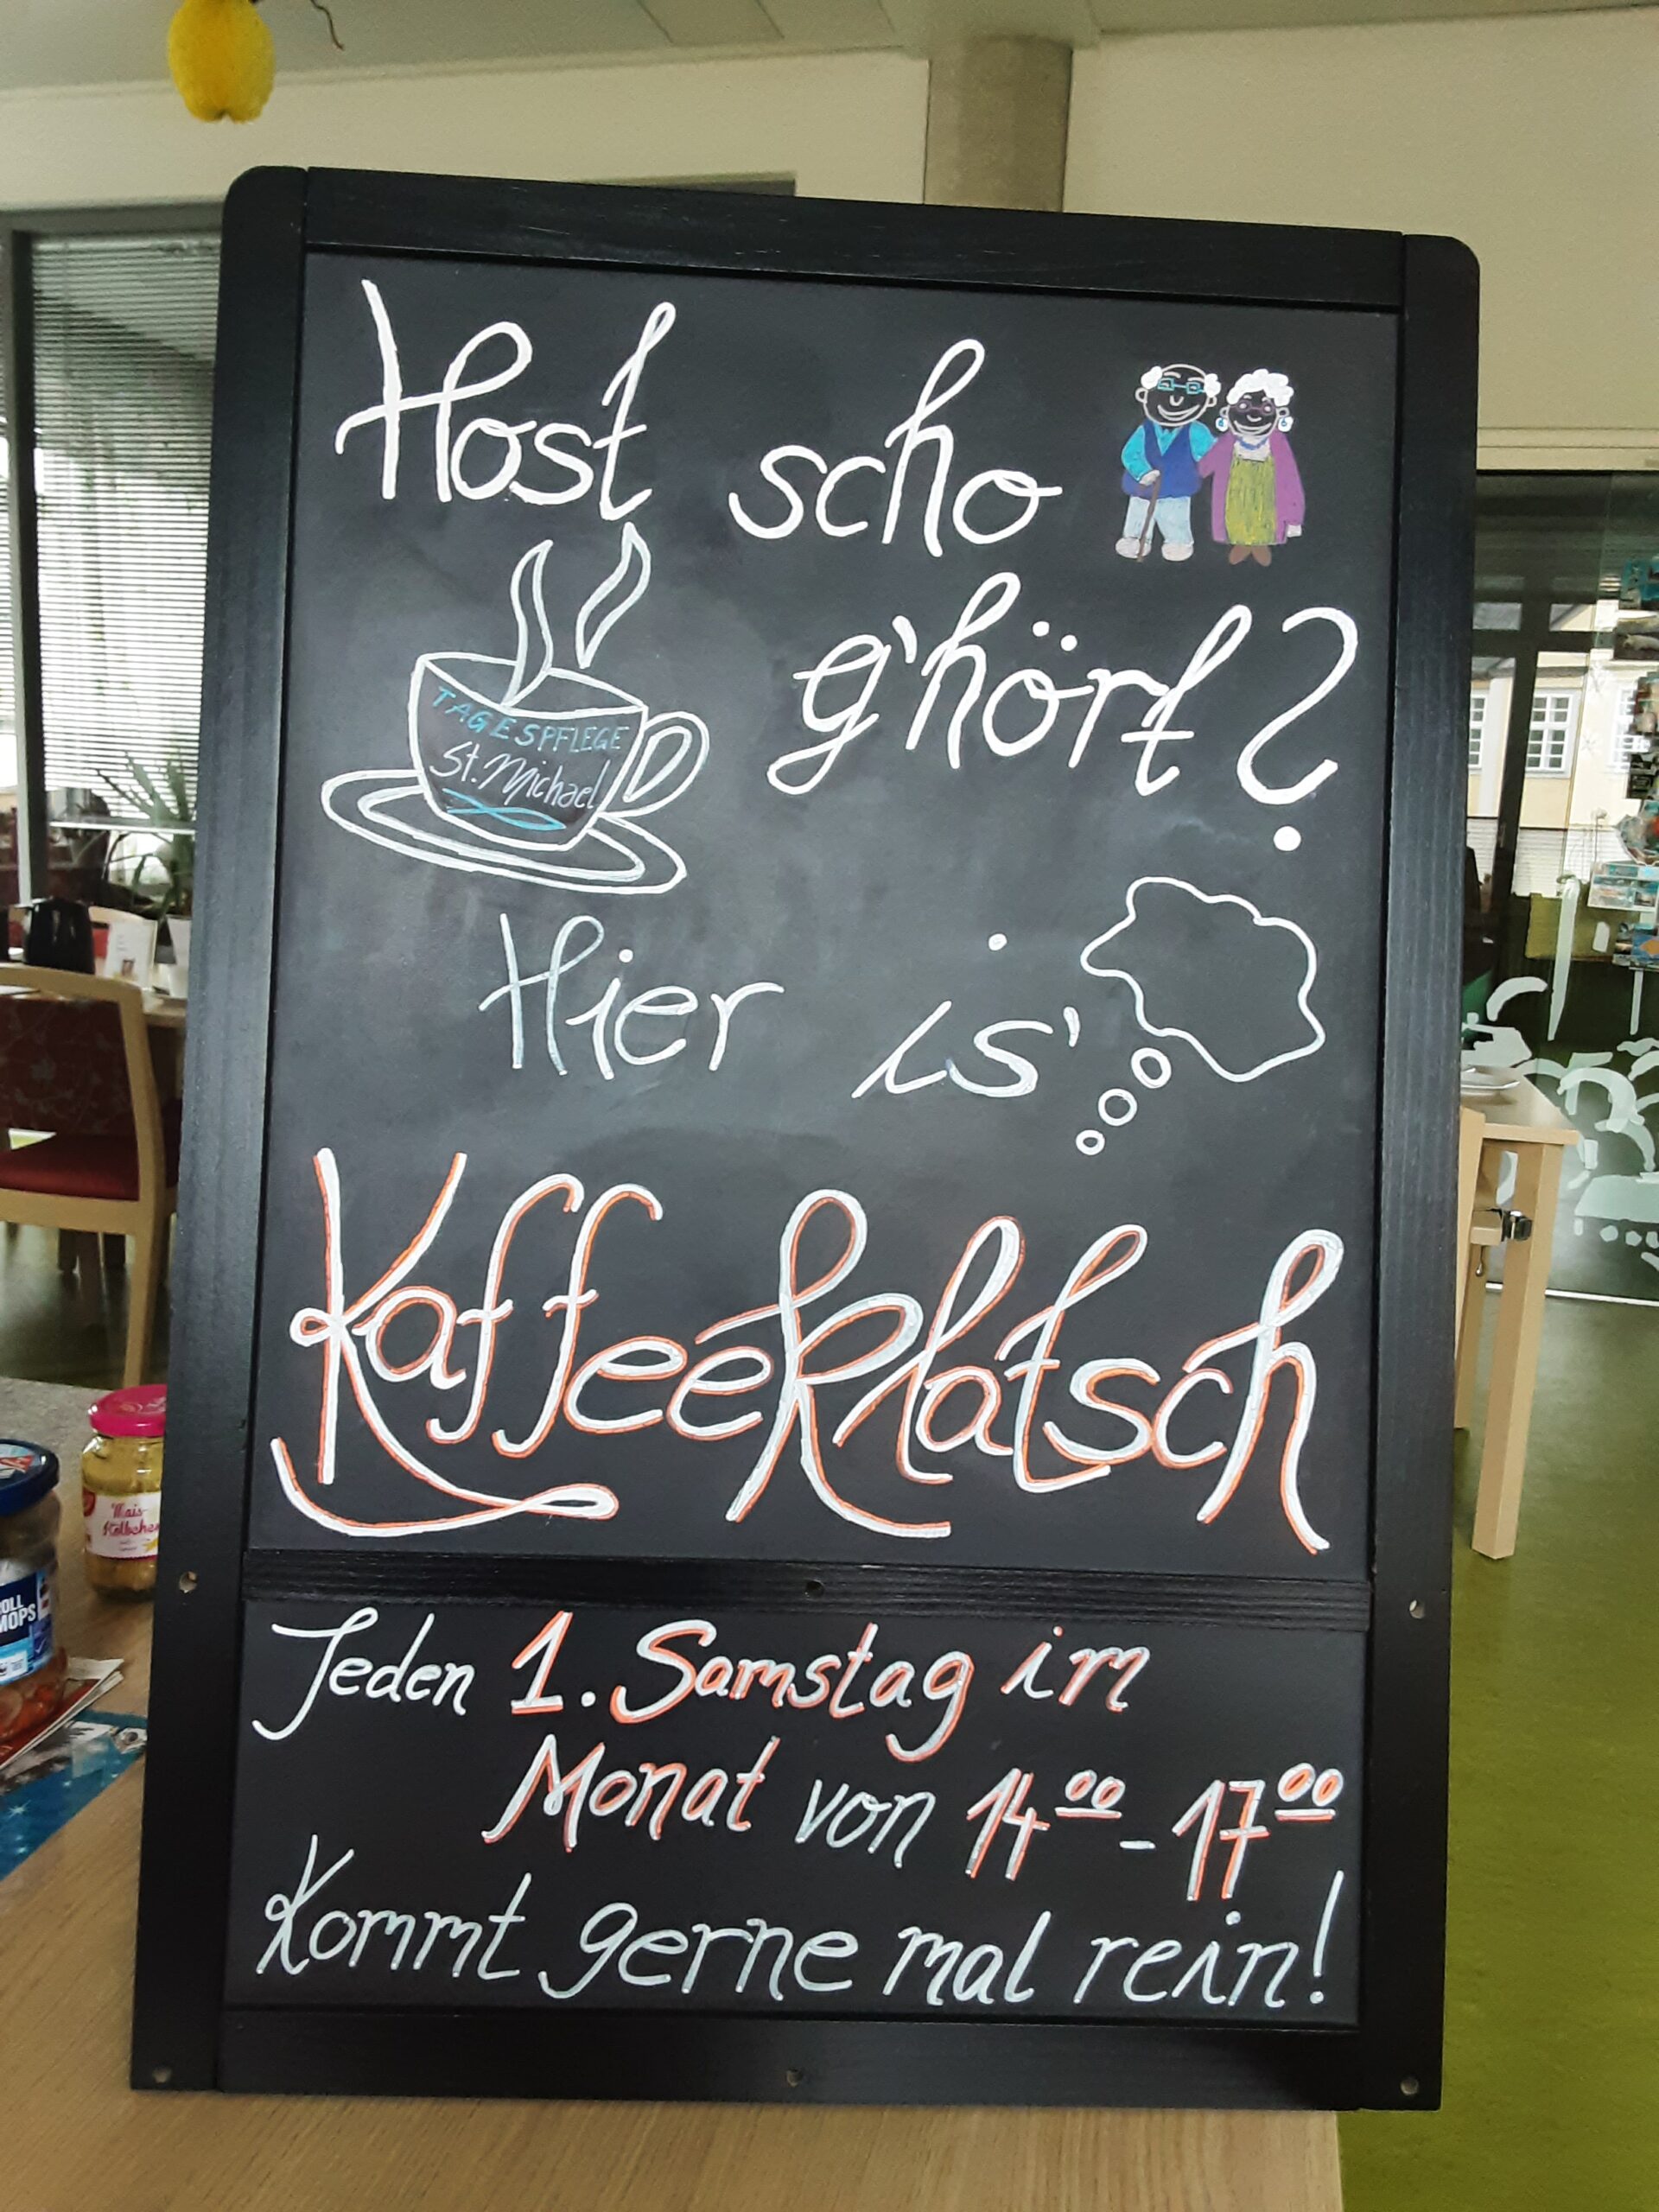 Host scho
g'hört?
TAGESPFLEGE
St. Michael
Hier is'
Kaffeeklatsch
Jeden 1. Samstag im
Monat von 14⁰⁰ - 17⁰⁰
Kommt gerne mal rein!
Mais-
Kölbchen
ROLL
MOPS